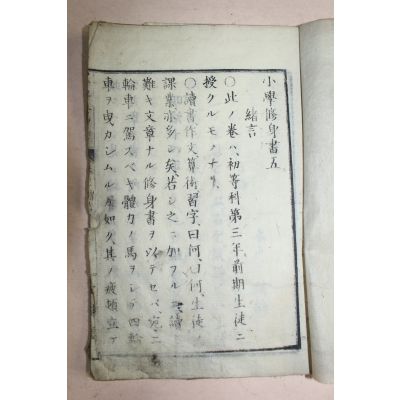 小學修身書五
緒言
〇此ノ卷ハ、初等科第三年前期生徒ニ
授クルモノナリ
〇讀書作文、算術習字、曰何、曰何、生徒ノ
課業亦多シ矣、若シ之ニ加フル 讀
難キ文章ナル修身書ヲ以テセバ、宛ニ
輪車ニ駕スベキ體力ノ馬ヲシテ四輪
車ヲ曳カシムル 如ク、其ノ疲頓立